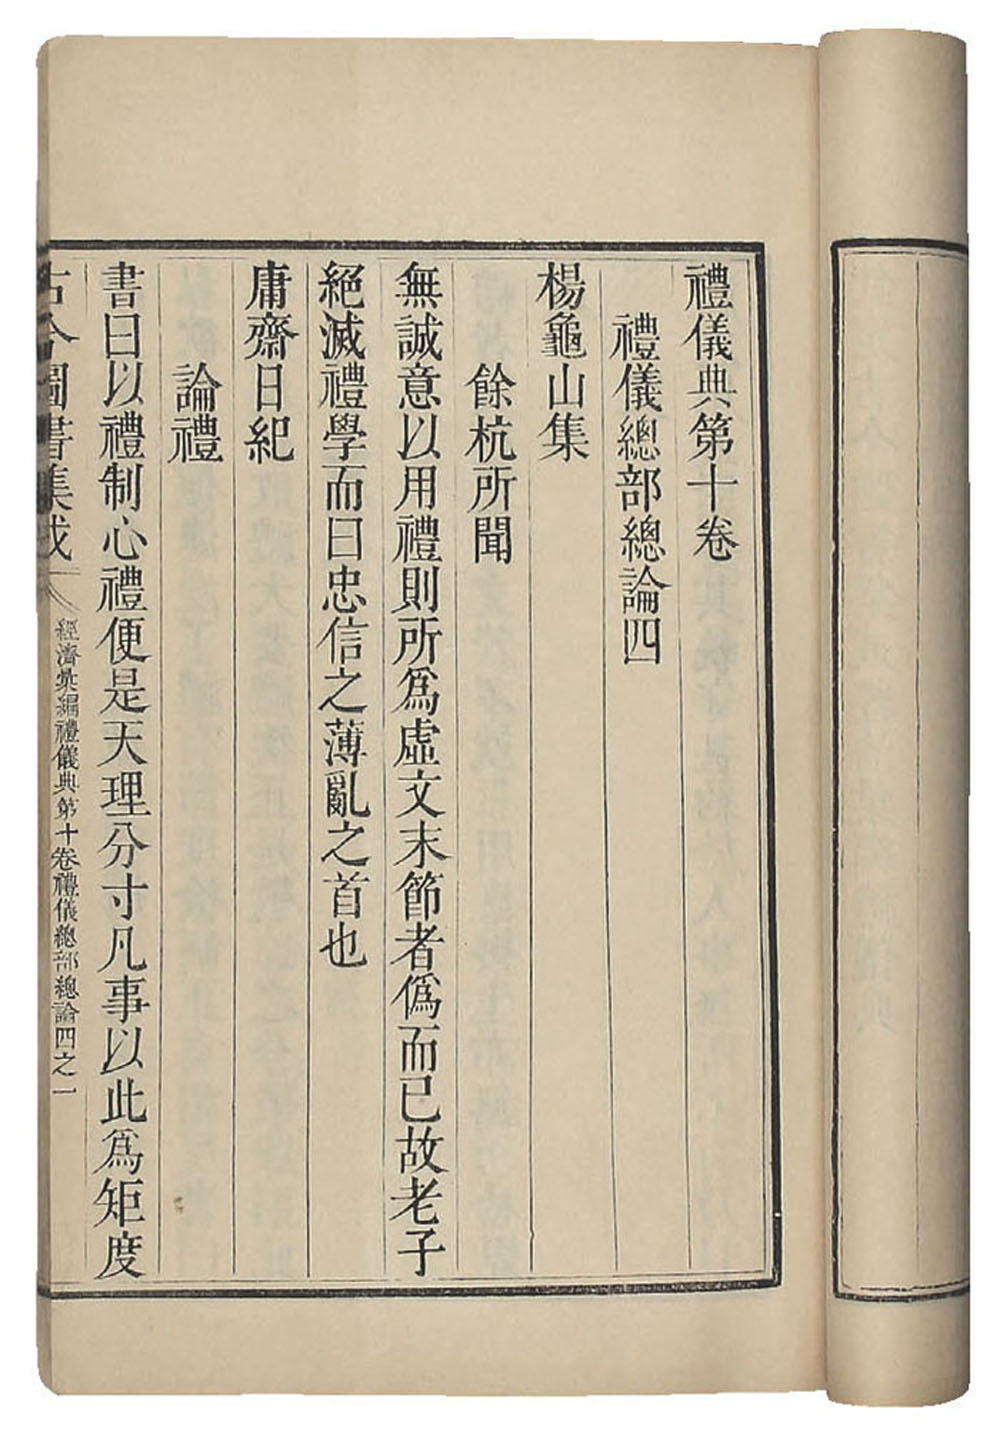 禮儀典第十卷
禮儀總部總論四
楊龜山集
餘杭所聞
無誠意以用禮則所爲虛文末節者僞而已故老子
絕滅禮學而曰忠信之薄亂之首也
庸齋日紀
論禮
書曰以禮制心禮便是天理分寸凡事以此爲矩度
古今圖書集成
經濟彙編禮儀典第十卷禮儀總部總論四之一